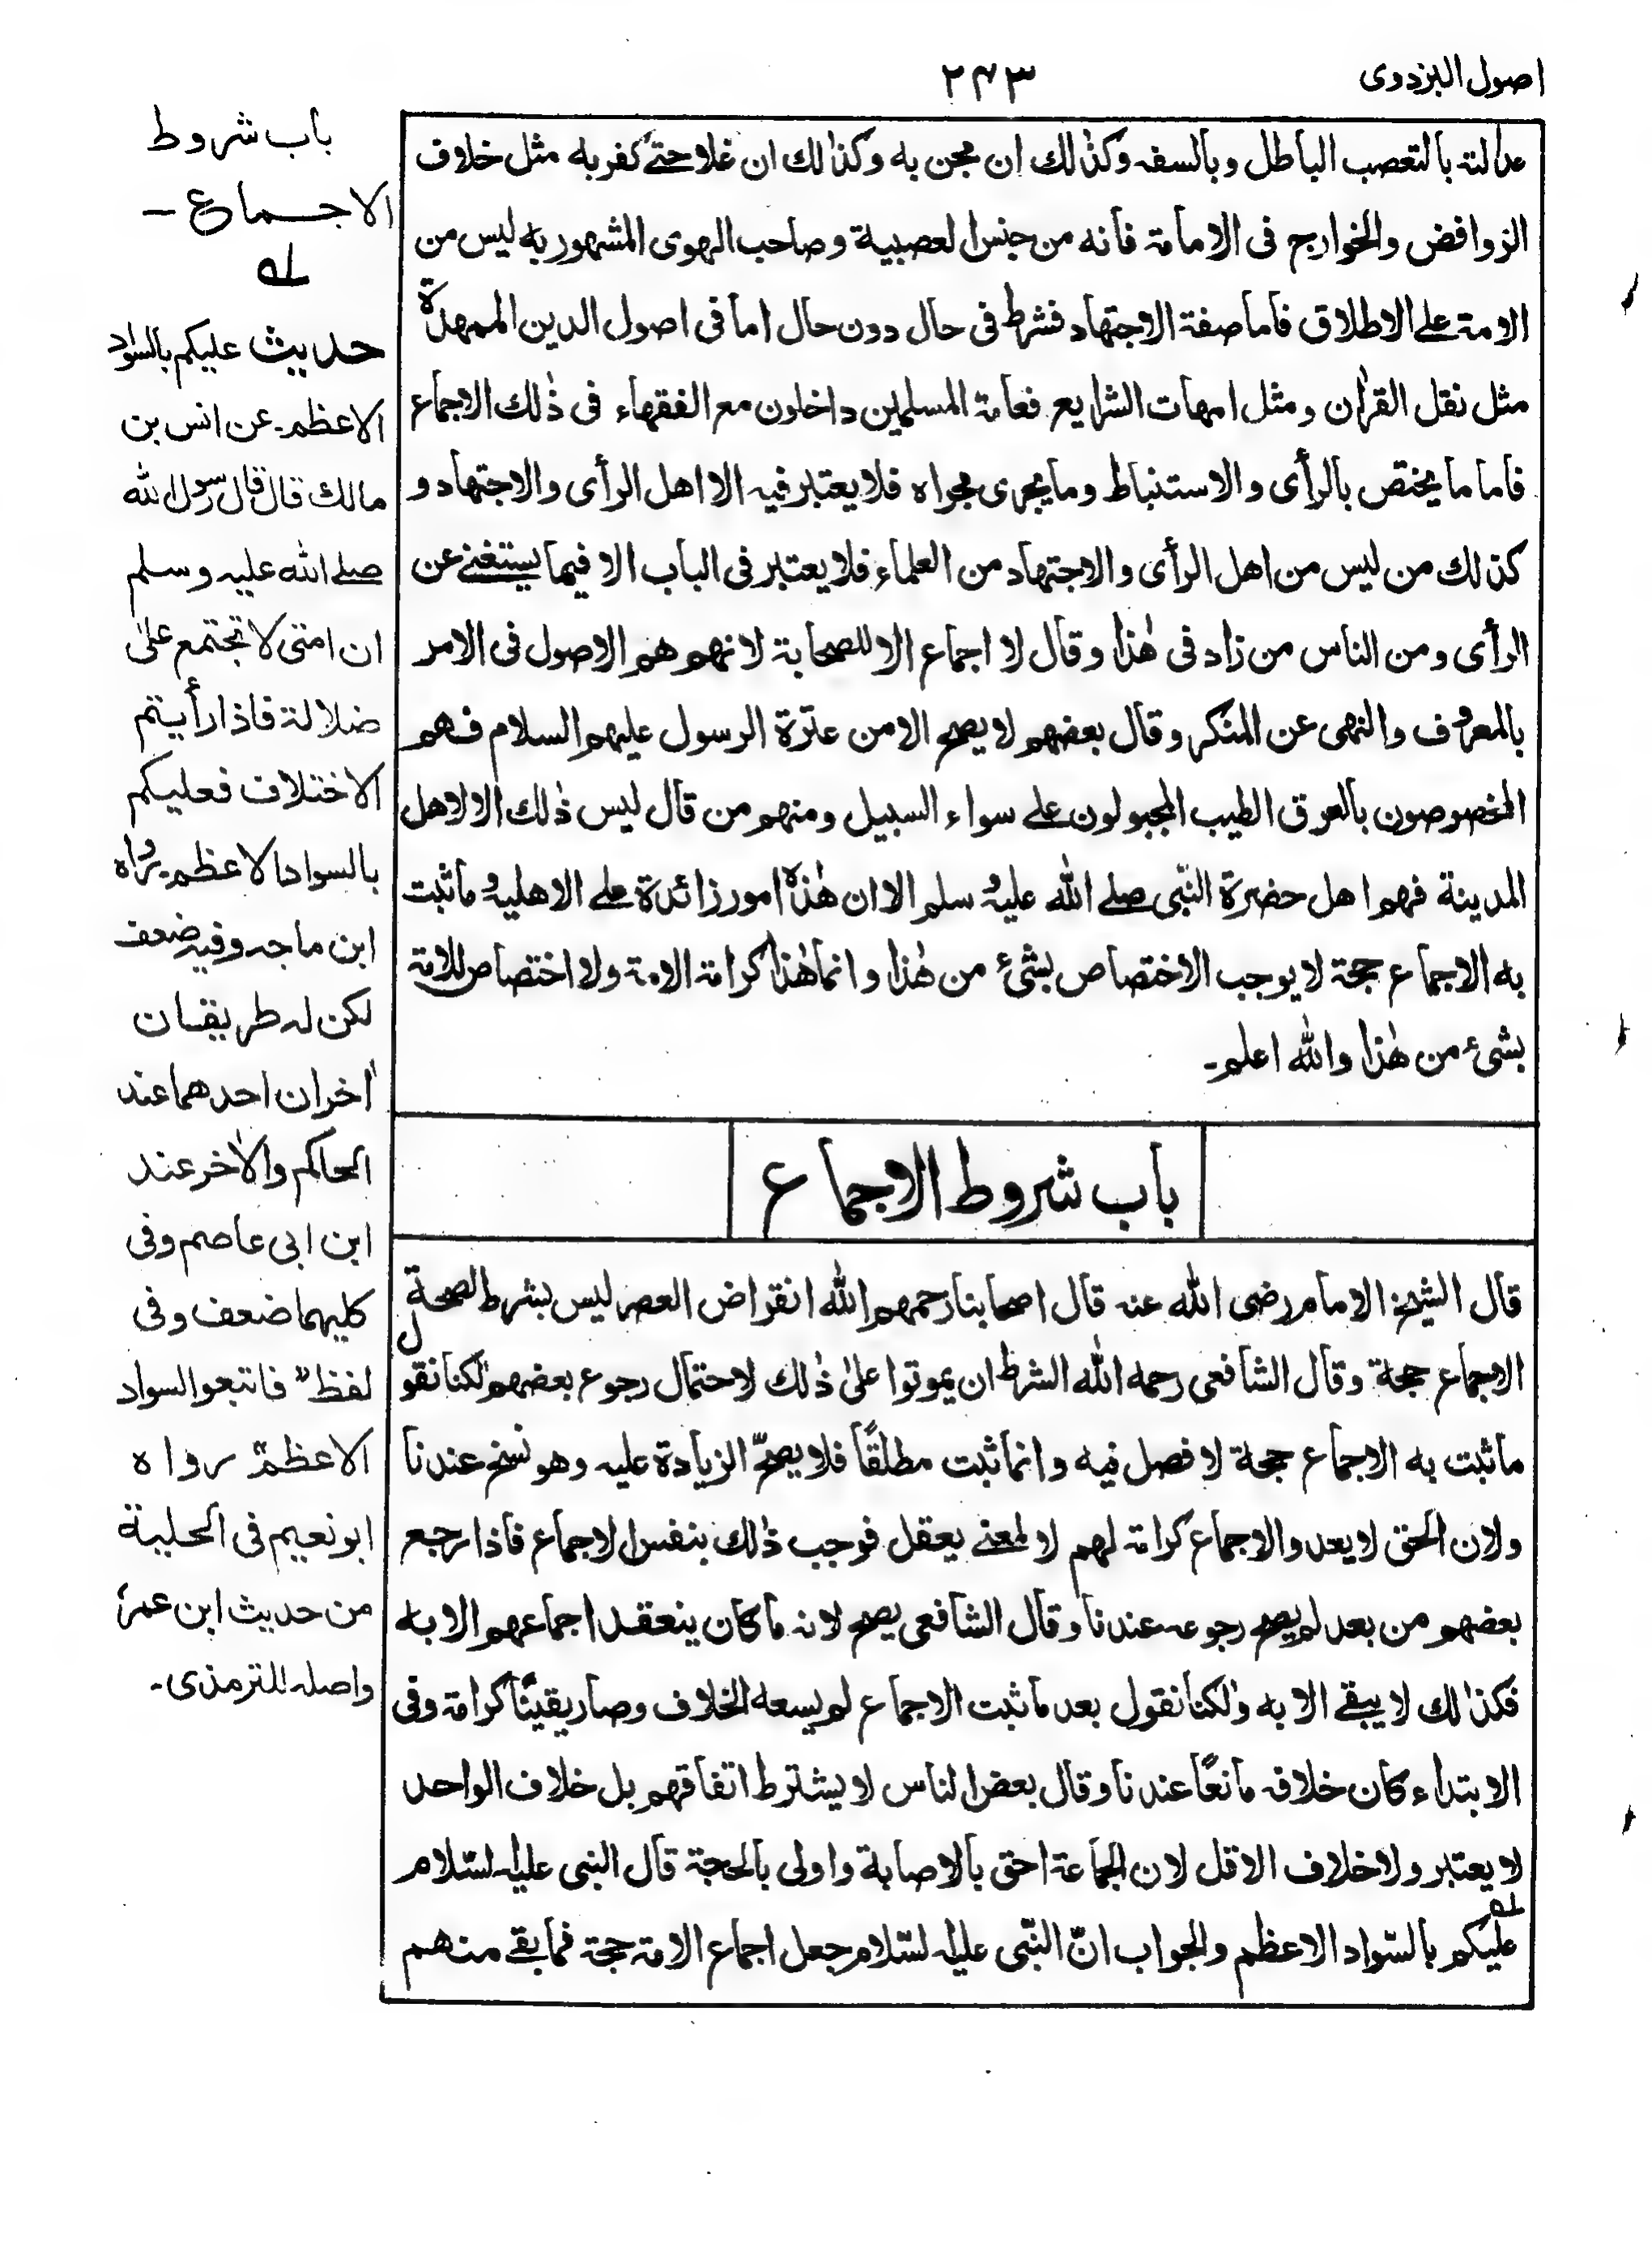 اصول البزدوى
٢٤٣
عدالته بالتعصب الباطل وبالسفه وكذٰلك ان مجن به وكذٰلك ان غلا حتے كفر به مثل خلاف
الروافض والخوارج فى الامامة فانه من جنس العصبية وصاحب الهوى المشهور به ليس من
الامة علے الاطلاق فاما صفة الاجتهاد فشرط فى حال دون حال اما فى اصول الدين الممهدة
مثل نقل القراٰن ومثل امهات الشرايع فعامة المسلمين داخلون مع الفقهاء فى ذٰلك الاجماع
فاما ما يختص بالرأى والاستنباط وما يجرى مجراه فلا يعتبر فيه الا اهل الرأى والاجتهاد و
كذلك من ليس من اهل الرأى والاجتهاد من العلماء فلا يعتبر فى الباب الا فيما يستغنے عن
الرأى ومن الناس من زاد فى هٰذا وقال لا اجماع الا للصحابة لانهم هم الاصول فى الامر
بالمعروف والنهى عن المنكر وقال بعضهم لا يصح الا من عترة الرسول عليهم السلام فهم
المخصوصون بالعرق الطيب المجبولون علے سواء السبيل ومنهم من قال ليس ذٰلك الا لاهل
المدينة فهم اهل حضرة النّبى صلے الله عليه وسلم الا ان هٰذه امور زائدة علے الاهلية وما ثبت
به الاجماع حجة لا يوجب الاختصاص بشئ من هٰذا وانما هٰذا كرامة الامة ولا اختصاص للامة
بشئ من هٰذا والله اعلم۔
باب شروط الاجماع
قال الشيخ الامام رضى الله عنه قال اصحابنا رحمهم الله انقراض العصر ليس بشرط لصحة
الاجماع حجة وقال الشافعى رحمه الله الشرط ان يموتوا علىٰ ذٰلك لاحتمال رجوع بعضهم لٰكنا نقول
ما ثبت به الاجماع حجة لا فصل فيه وانما ثبت مطلقًا فلا يصحّ الزيادة عليه وهو نسخ عندنا
ولان الحق لا يعدو الاجماع كرامة لهم لا لمعنے يعقل فوجب ذٰلك بنفس الاجماع فاذا رجع
بعضهم من بعد لم يصح رجوعه عندنا وقال الشافعى يصح لانه ما كان ينعقد اجماعهم الا به
فكذٰلك لا يبقے الا به ولٰكنا نقول بعد ما ثبت الاجماع لم يسعه الخلاف وصار يقينًا كرامة وفى
الابتداء كان خلافه مانعًا عندنا وقال بعض الناس لا يشترط اتفاقهم بل خلاف الواحد
لا يعتبر ولا خلاف الاقل لان الجماعة احق بالاصابة واولى بالحجة قال النبى عليه السّلام
عليكم بالسّواد الاعظم والجواب انّ النّبى عليه السّلام جعل اجماع الامة حجة فما بقے منهم
باب شروط
الاجماع ـ
له
حديث عليكم بالسواد
الاعظم۔ عن انس بن
مالك قال قال رسول الله
صلے الله عليه وسلم
ان امتى لا تجتمع علىٰ
ضلالة فاذا رأيتم
الاختلاف فعليكم
بالسواد الاعظم۔ رواه
ابن ماجه وفيه ضعف
لكن له طريقان
اٰخران احدهما عند
الحاكم والاٰخر عند
ابن ابى عاصم وفى
كليهما ضعف وفى
لفظ" فاتبعوا السواد
الاعظم" رواه
ابو نعيم فى الحلية
من حديث ابن عمرؓ
واصله للترمذى۔